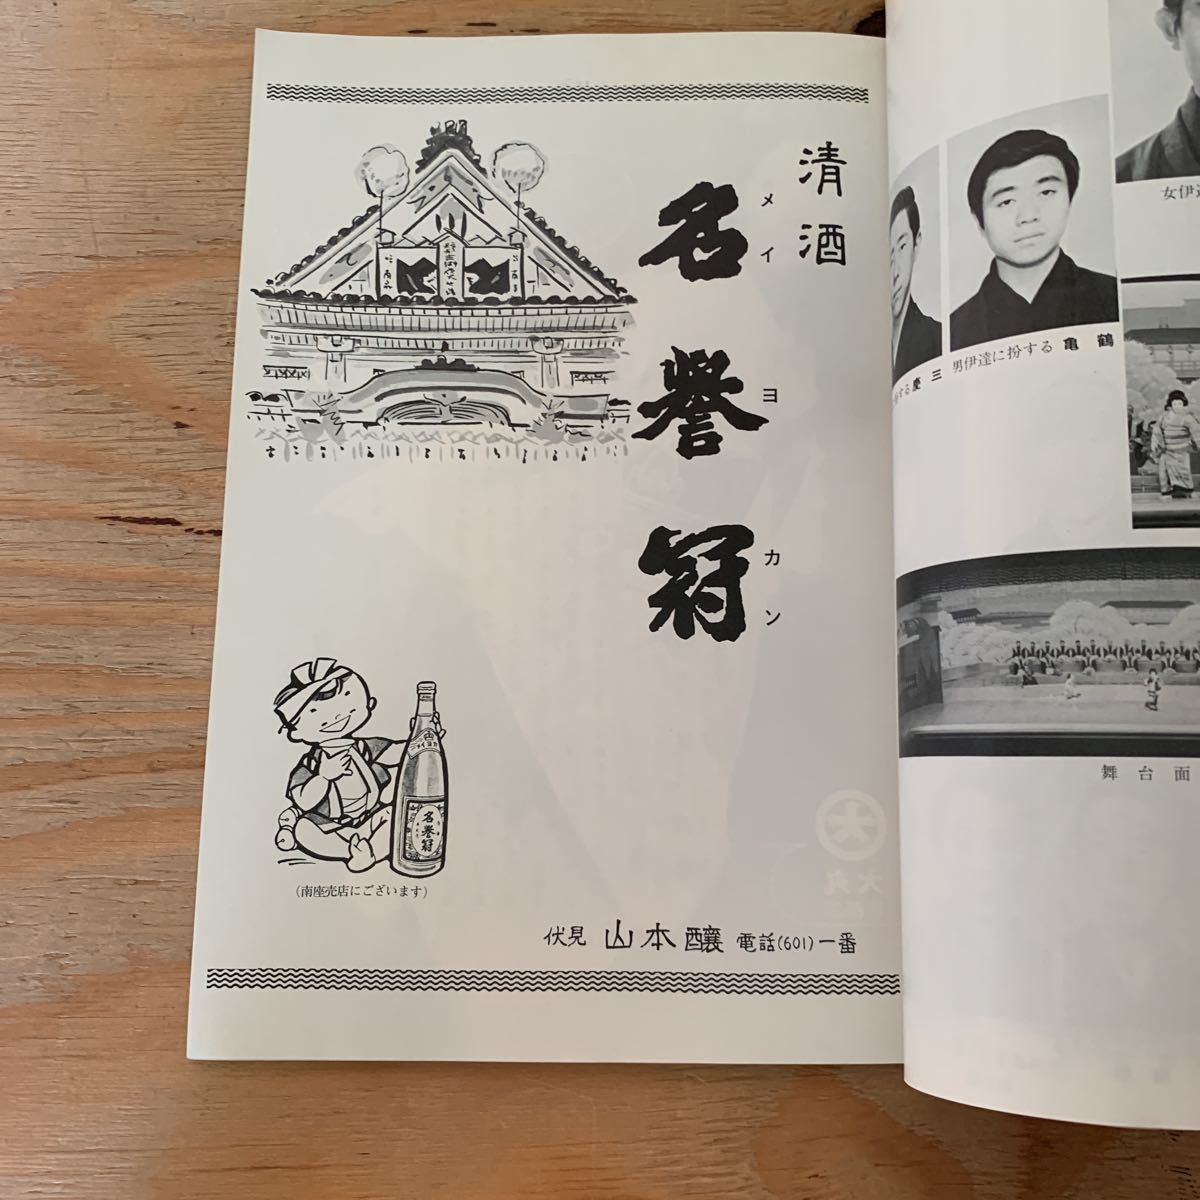 清酒
名譽冠
メイヨカン
名誉冠
(南座売店にございます)
伏見 山本釀 電話(601)一番
女伊達
男伊達に扮する 亀鶴
する 慶三
舞台面